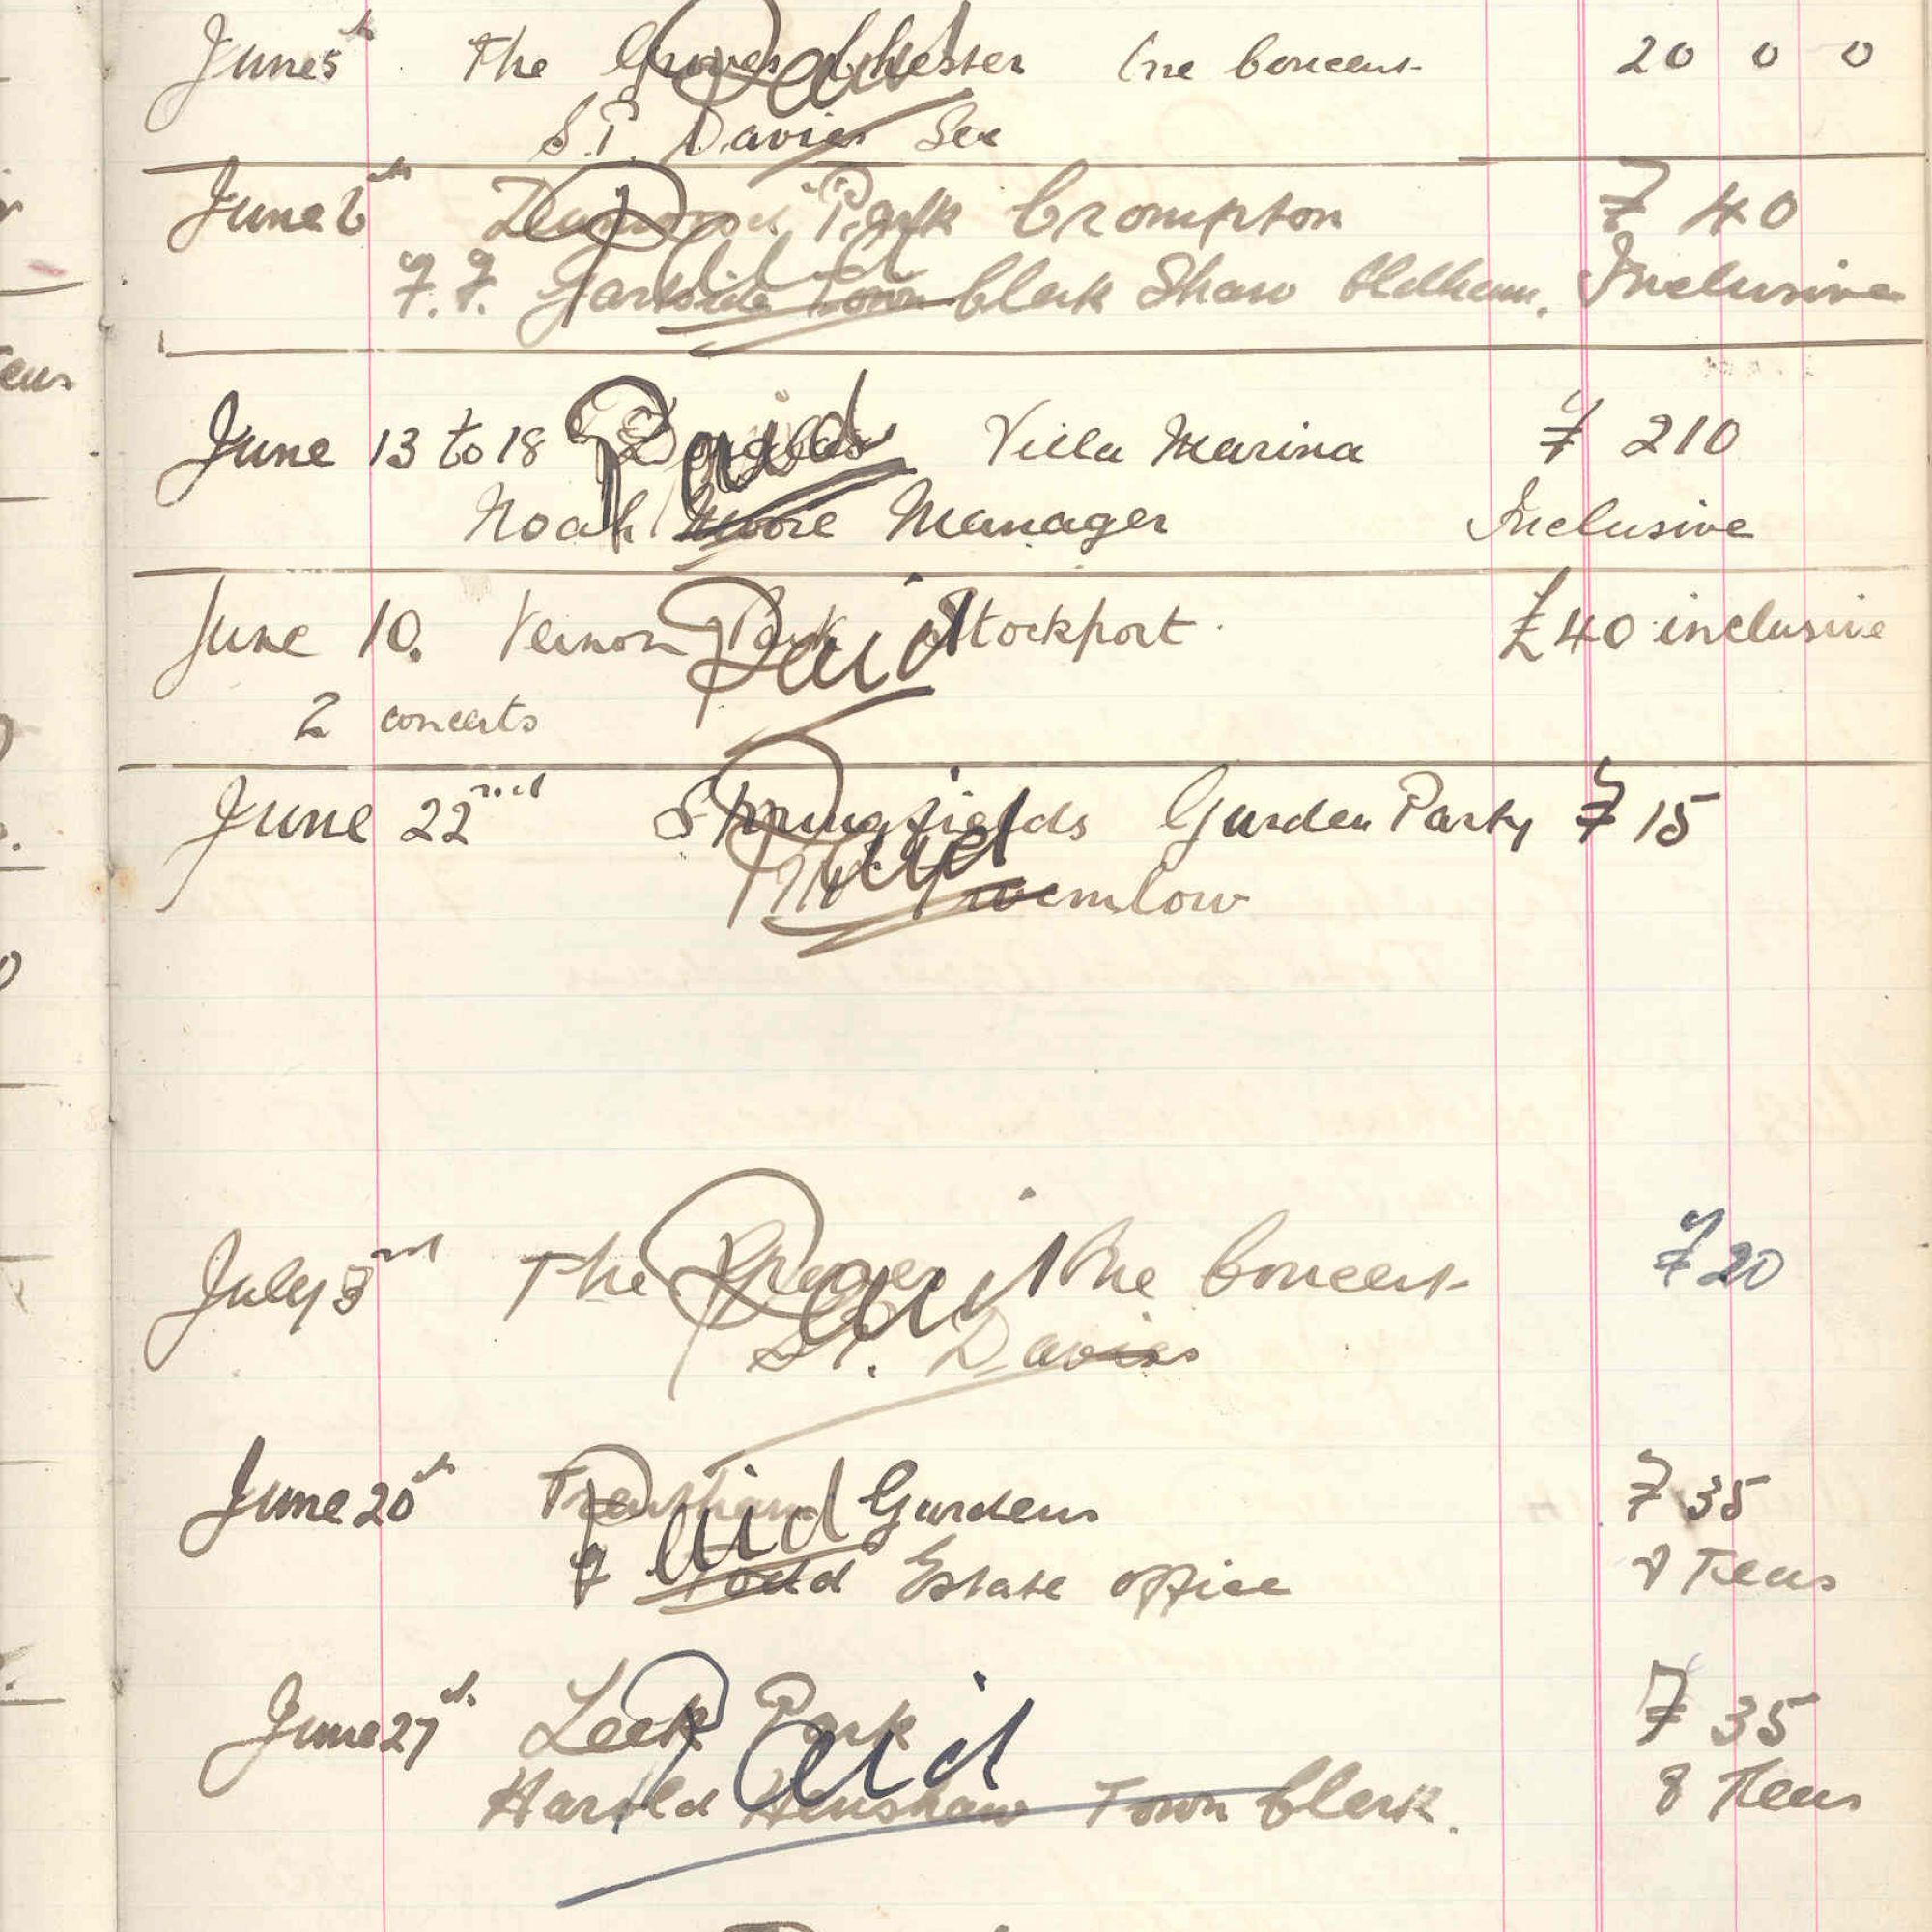 June 5th The Groves Chester One Concert 20 0 0
Paid
S.P. Davies Sec
June 6th Park Crompton £ 40
Paid
J.J. Gartside Town Clerk Shaw Oldham. Inclusive
June 13 to 18 Douglas Villa Marina £ 210
Paid
Noah Moore Manager Inclusive
June 10. Vernon Park Stockport £40 inclusive
Paid
2 concerts
June 22nd Springfields Garden Party £ 15
Paid
Mr Twemlow
July 3rd The One Concert £20
Paid
Davies
June 20th Trentham Gardens £ 35
Paid
Todd Estate Office 8 Teas
June 27th Leek Park £ 35
Paid
Harold Henshaw Town Clerk. 8 Teas